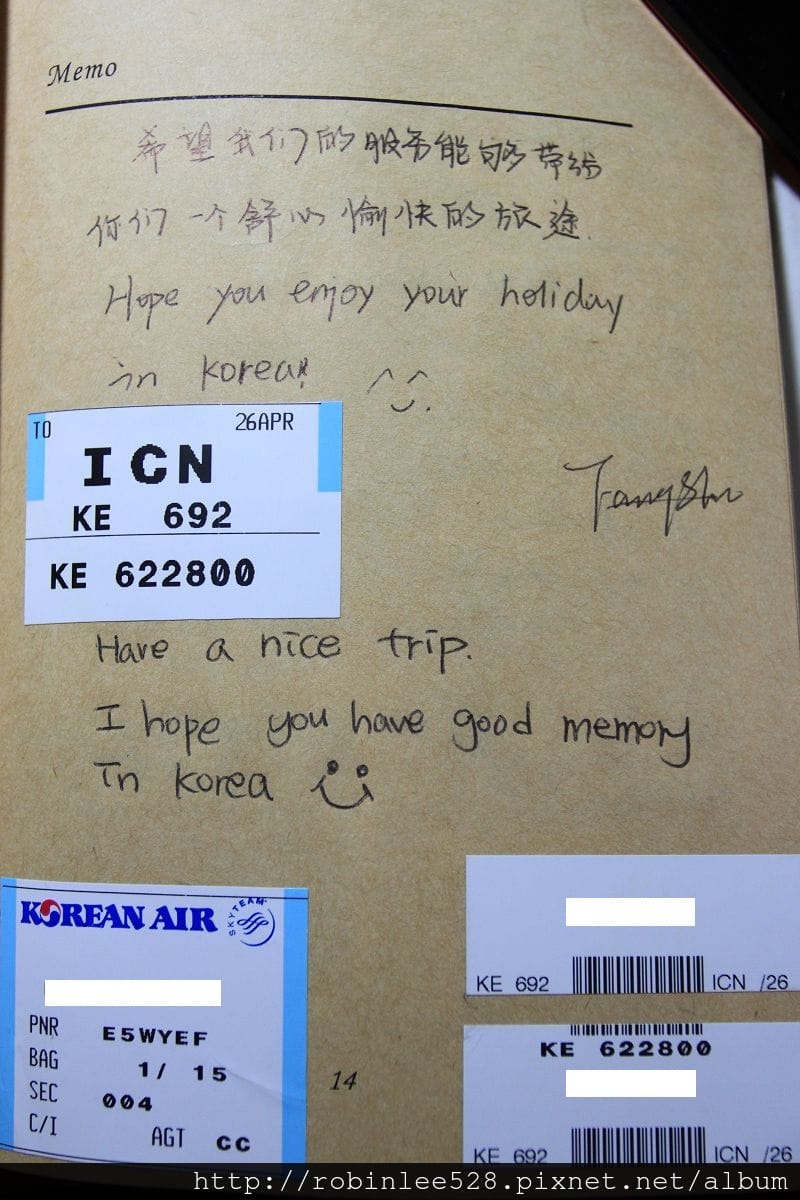 Memo
希望我们的服务能够带给
你们一个舒心愉快的旅途.
Hope you enjoy your holiday
in korea!
TO 26APR
ICN
KE 692
KE 622800
Have a nice trip.
I hope you have good memory
in korea
KOREAN AIR SKYTEAM
PNR E5WYEF
BAG 1/ 15
SEC 004
C/I AGT CC
14
KE 692 ICN /26
KE 622800
KE 692 ICN /26
http://robinlee528.pixnet.net/album